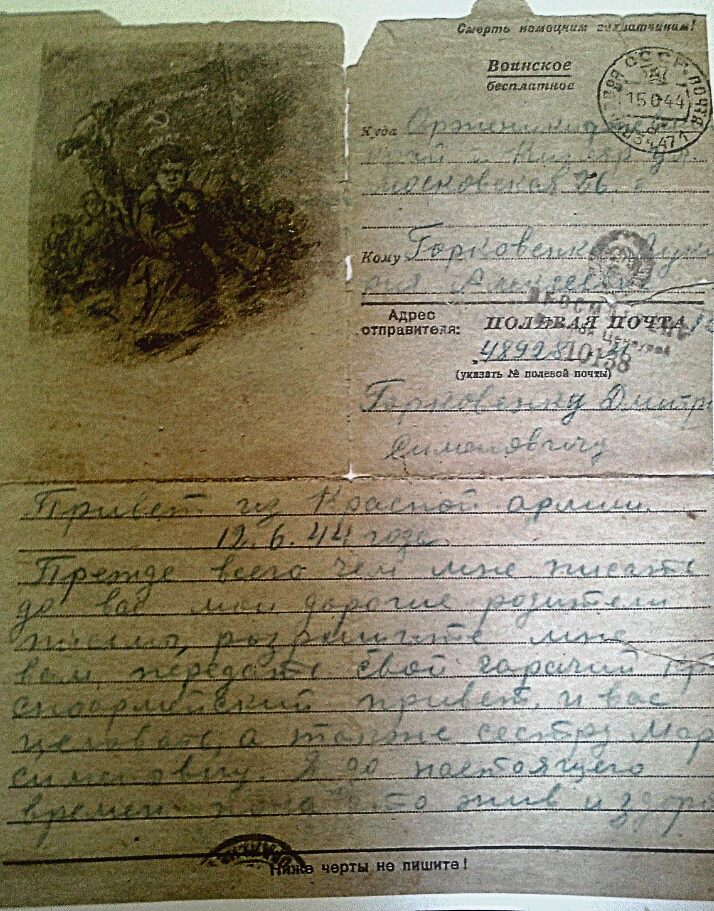 Смерть немецким захватчикам!
Воинское
бесплатное
СССР ПОЧТА
15 6 44
Куда
московская 26
Кому Горковенко
Адрес
отправителя:
ПОЛЕВАЯ ПОЧТА
48928
10158
(указать № полевой почты)
Горковенку Дмитр
Сименовичу
Привет из Красной армии.
12.6.44 года.
Прежде всего чем мне писать
до вас мои дорогие родители
письмо, розришите мне
вам передать свой гарачий кр
сноармейский привет, и вас
целовать, а также сестру Мар
сименовну. Я до настоящего
времен жив и здоро
Ниже черты не пишите!